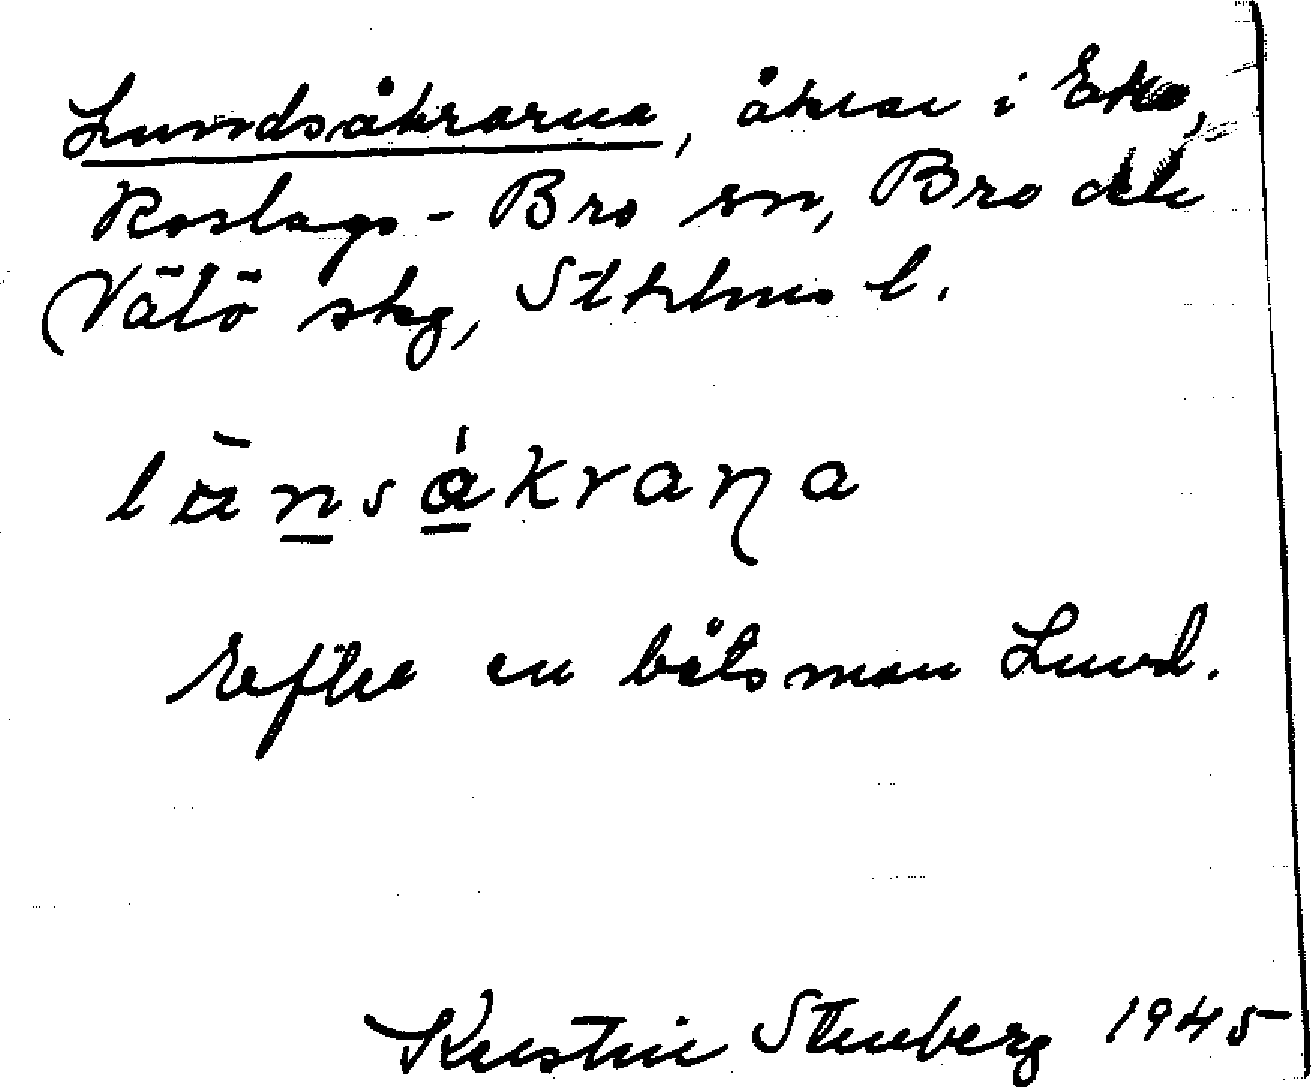 Lundsåkrarna, åkrar i Eke,
Roslags-Bro sn, Bro och
Vätö skg, Sthlms l.
Efter en båtsman Lund.
Kerstin Stenberg 1945